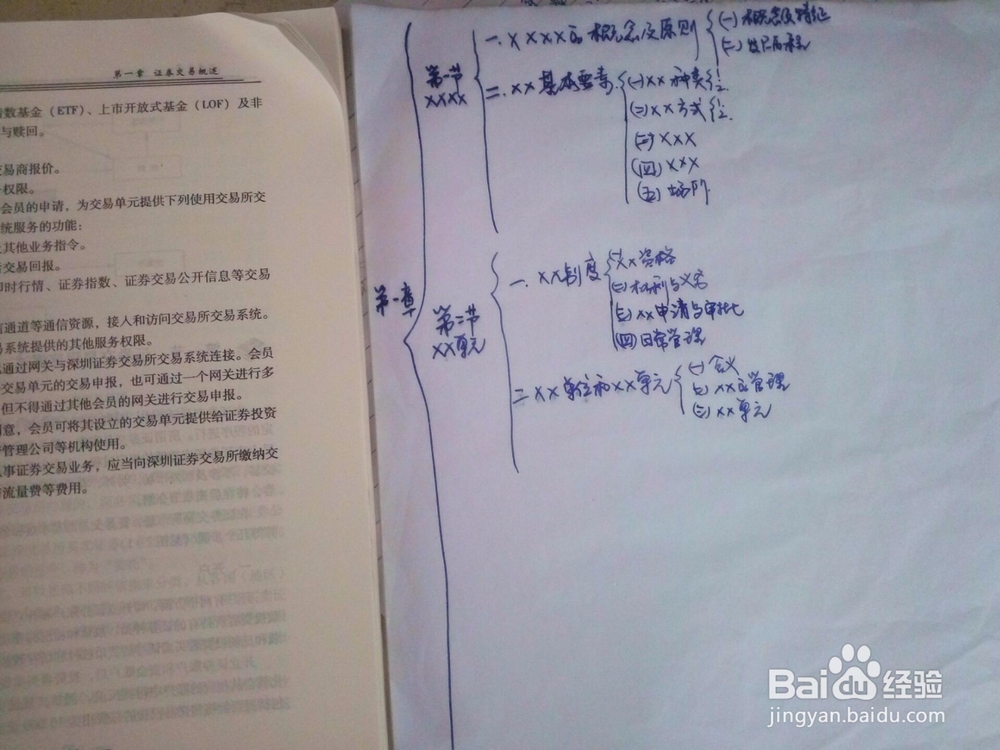 第一章 证券交易概述
指数基金（ETF）、上市开放式基金（LOF）及非
与赎回。
交易商报价。
权限。
会员的申请，为交易单元提供下列使用交易所交
统服务的功能：
其他业务指令。
交易回报。
即时行情、证券指数、证券交易公开信息等交易
信通道等通信资源，接入和访问交易所交易系统。
易系统提供的其他服务权限。
通过网关与深圳证券交易所交易系统连接。会员
交易单元的交易申报，也可通过一个网关进行多
但不得通过其他会员的网关进行交易申报。
同意，会员可将其设立的交易单元提供给证券投资
管理公司等机构使用。
事证券交易业务，应当向深圳证券交易所缴纳交
流量费等费用。
第一章
第一节
XXXX
一.XXXX的概念及原则
(一)概念及特征
(二)发展历程
二.XX基本要素
(一)XX种类
(二)XX方式
(三)XXX
(四)XXX
(五)场所
第二节
XX单元
一.XX制度
(一)XX资格
(二)权利与义务
(三)XX申请与审批
(四)日常管理
二.XX单位和XX单元
(一)含义
(二)XX的管理
(三)XX单元
Baidu经验
jingyan.baidu.com